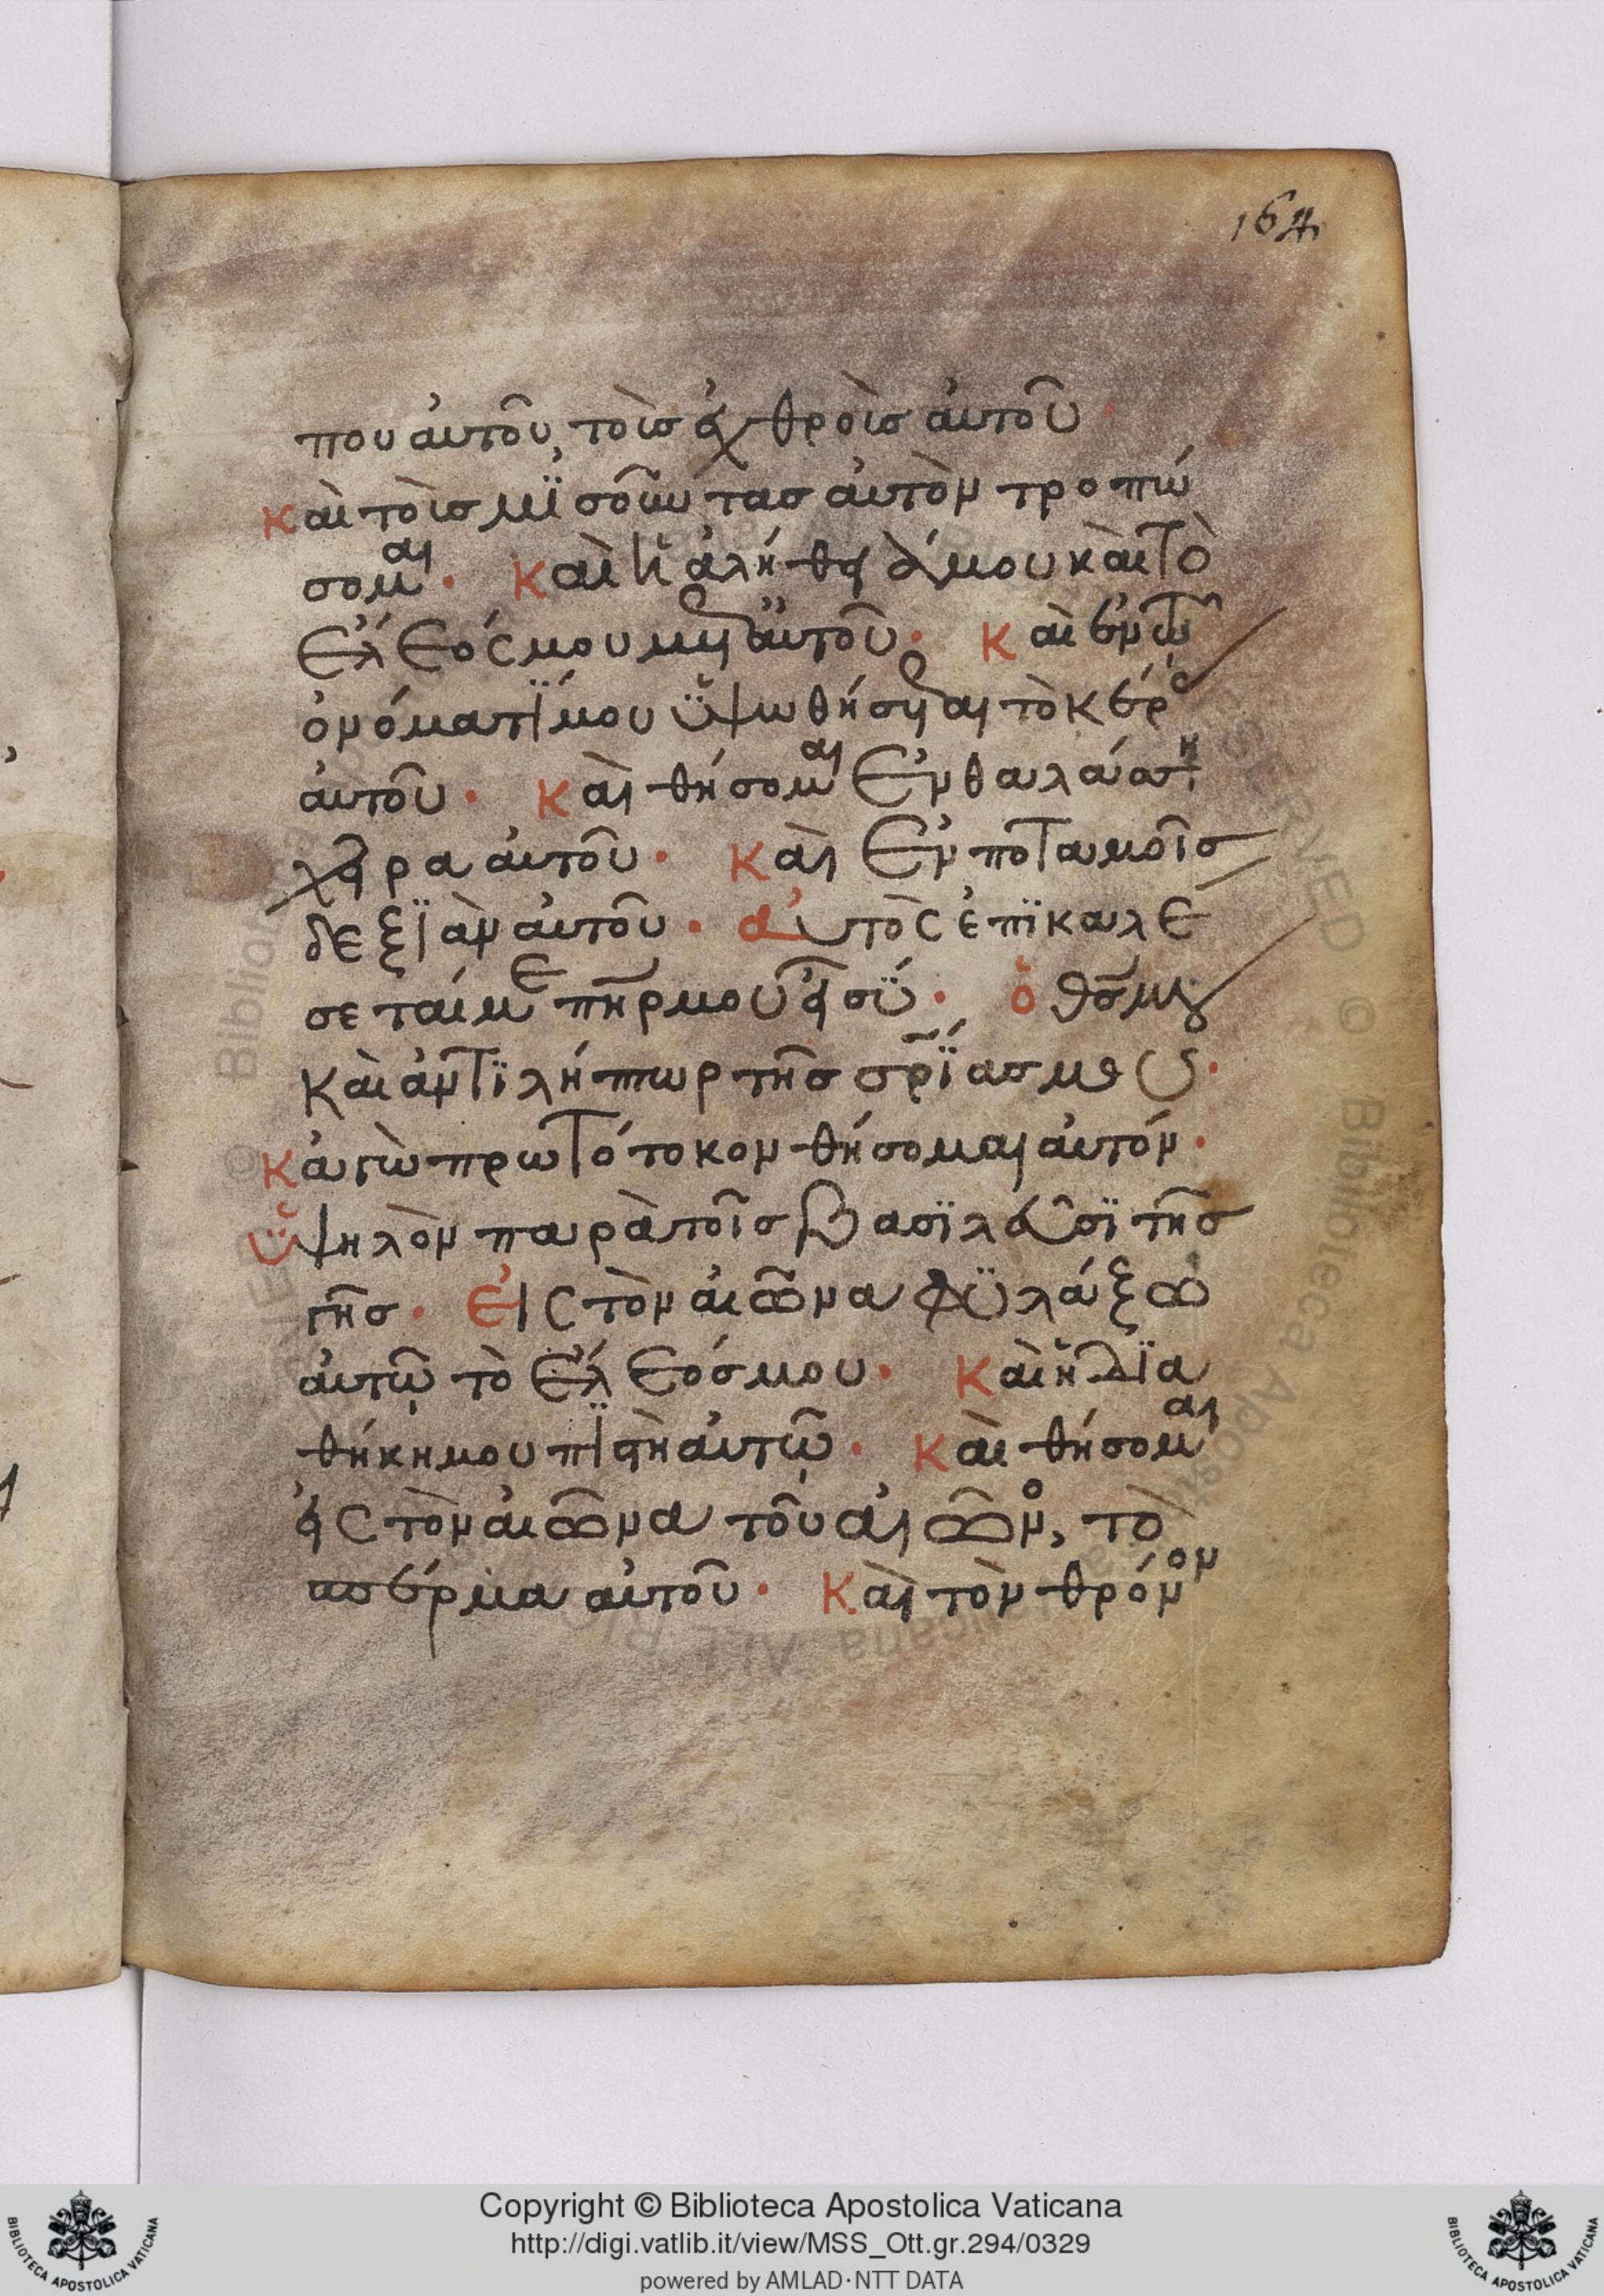 164
που αὐτοῦ, τοὺς ἐχθροὺς αὐτοῦ·
Καὶ τοὺς μϊσοῦντας αὐτὸν τροπώ
σομαι· Καὶ ἡ ἀλήθειά μου καὶ τὸ
ἔλεός μου μετ αὐτοῦ· Καὶ ἐν τῶ
ὀνόματΐ μου ὑψωθήσεται τὸ κέρας
αὐτοῦ· Καὶ θήσομαι ἐν θαλάσση
χεῖρα αὐτοῦ· Καὶ ἐν ποταμοῖς
δεξϊὰν αὐτοῦ· αὐτὸς ἐπϊκαλέ
σεταί με πηρ μου εἶ σϋ· ὁ θς μου
Καὶ ἀντϊλήπτωρ τῆς σρΐας μου·
Κἀγὼ πρωτότοκον θήσομαι αὐτόν·
ὑψηλὸν παρὰ τοῖς βασϊλεῦσϊ τῆς
γῆς· εἰς τὸν αἰῶνα φϋλάξω
αὐτῶ τὸ ἔλεός μου· Καὶ ἡ δϊα
θήκη μου πϊστὴ αὐτῶ· Καὶ θήσομαι
εἰς τὸν αἰῶνα τοῦ αἰῶνος, τὸ
σπέρμα αὐτοῦ· Καὶ τὸν θρόνον
Copyright © Biblioteca Apostolica Vaticana
http://digi.vatlib.it/view/MSS_Ott.gr.294/0329
powered by AMLAD·NTT DATA
BIBLIOTECA APOSTOLICA VATICANA
BIBLIOTECA APOSTOLICA VATICANA